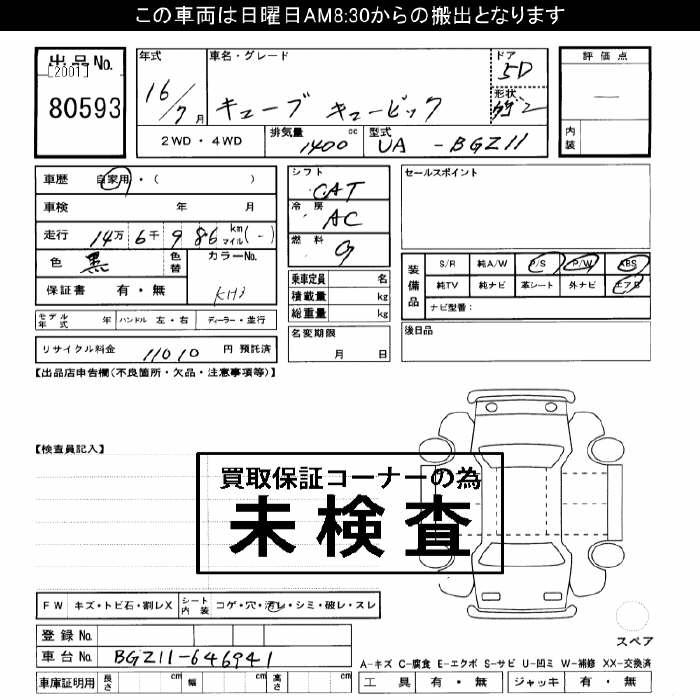 この車両は日曜日AM8:30からの搬出となります
出品No.
[2001]
80593
年式
16/7月
車名・グレード
キューブ キュービック
ドア
5D
形状
評価点
—
内装
2WD・4WD
排気量
1400 cc
型式
UA - BGZ11
車歴 自家用・( )
車検 年 月
走行 14万 6千 9 86 km マイル (-)
色 黒
色替
カラーNo.
KH3
保証書 有・無
モデル年式 年 ハンドル 左・右 ディーラー・並行
リサイクル料金 11010 円 預託済
シフト
CAT
冷房
AC
燃料
G
乗車定員 名
積載量 kg
総重量 kg
名変期限
月 日
セールスポイント
装備品
S/R 純A/W P/S P/W ABS
純TV 純ナビ 革シート 外ナビ エアB
ナビ型番:
後日品
【出品店申告欄(不良箇所・欠品・注意事項等)】
【検査員記入】
買取保証コーナーの為
未検査
FW キズ・トビ石・割レX シート内装 コゲ・穴・汚レ・シミ・破レ・スレ
登録No.
車台No. BGZ11-646941
車庫証明用 長さ cm 幅 cm 高さ cm
スペア
A-キズ C-腐食 E-エクボ S-サビ U-凹ミ W-補修 XX-交換済
工具 有・無 ジャッキ 有・無